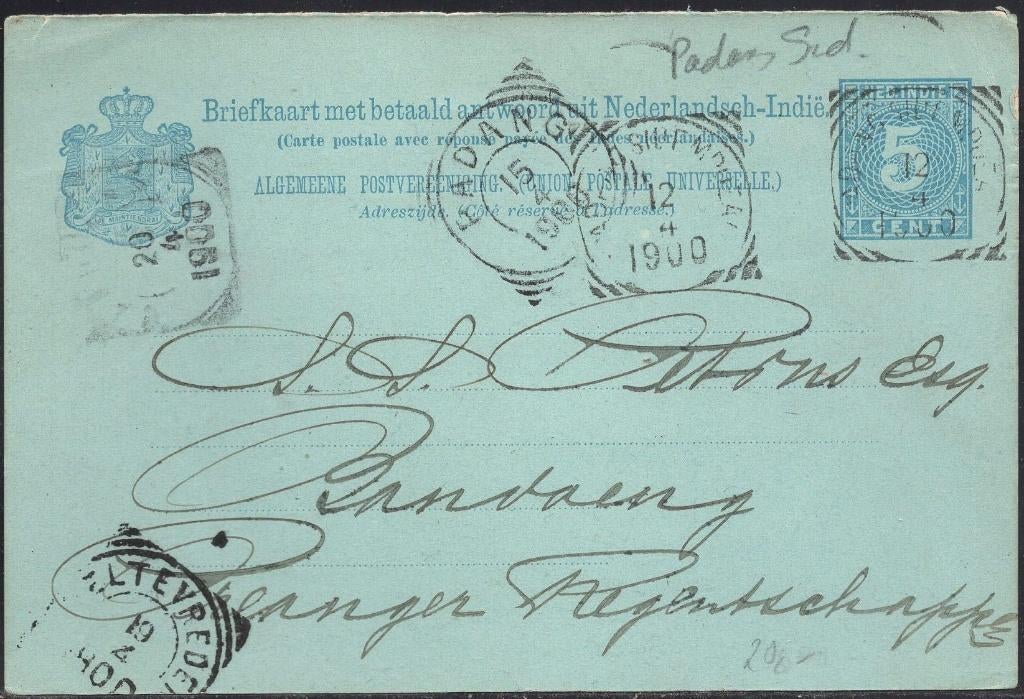 Padang Sid.
Briefkaart met betaald antwoord uit Nederlandsch-Indië.
(Carte postale avec réponse payée des Indes néerlandaises.)
ALGEMEENE POSTVEREENIGING. (UNION POSTALE UNIVERSELLE.)
Adreszijde. (Côté réservé à l'adresse.)
JE MAINTIENDRAI
NED. INDIE
5
CENT
PADANG
15
4
1900
12
4
1900
12
4
1900
20
4
1900
S. S. Petrons Esq.
Bandoeng
Preanger Regentschappen
WELTEVREDEN
19
4
900